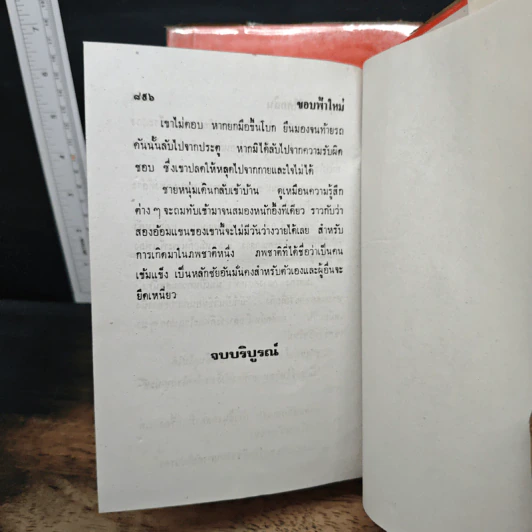 ๘๕๖ ขอบฟ้าใหม่
เขาไม่ตอบ หากยกมือขึ้นโบก ยืนมองจนท้ายรถ
คันนั้นลับไปจากประตู หากมิได้ลับไปจากความรับผิด
ชอบ ซึ่งเขาปลดให้หลุดไปจากกายและใจไม่ได้
ชายหนุ่มเดินกลับเข้าบ้าน ดูเหมือนความรู้สึก
ต่าง ๆ จะถมทับเข้ามาจนสมองหนักอึ้งทีเดียว ราวกับว่า
สองอ้อมแขนของเขานี้จะไม่มีวันว่างวายได้เลย สำหรับ
การเกิดมาในภพชาติหนึ่ง ภพชาติที่ได้ชื่อว่าเป็นคน
เข้มแข็ง เป็นหลักชัยอันมั่นคงสำหรับตัวเองและผู้อื่นจะ
ยึดเหนี่ยว
จบบริบูรณ์